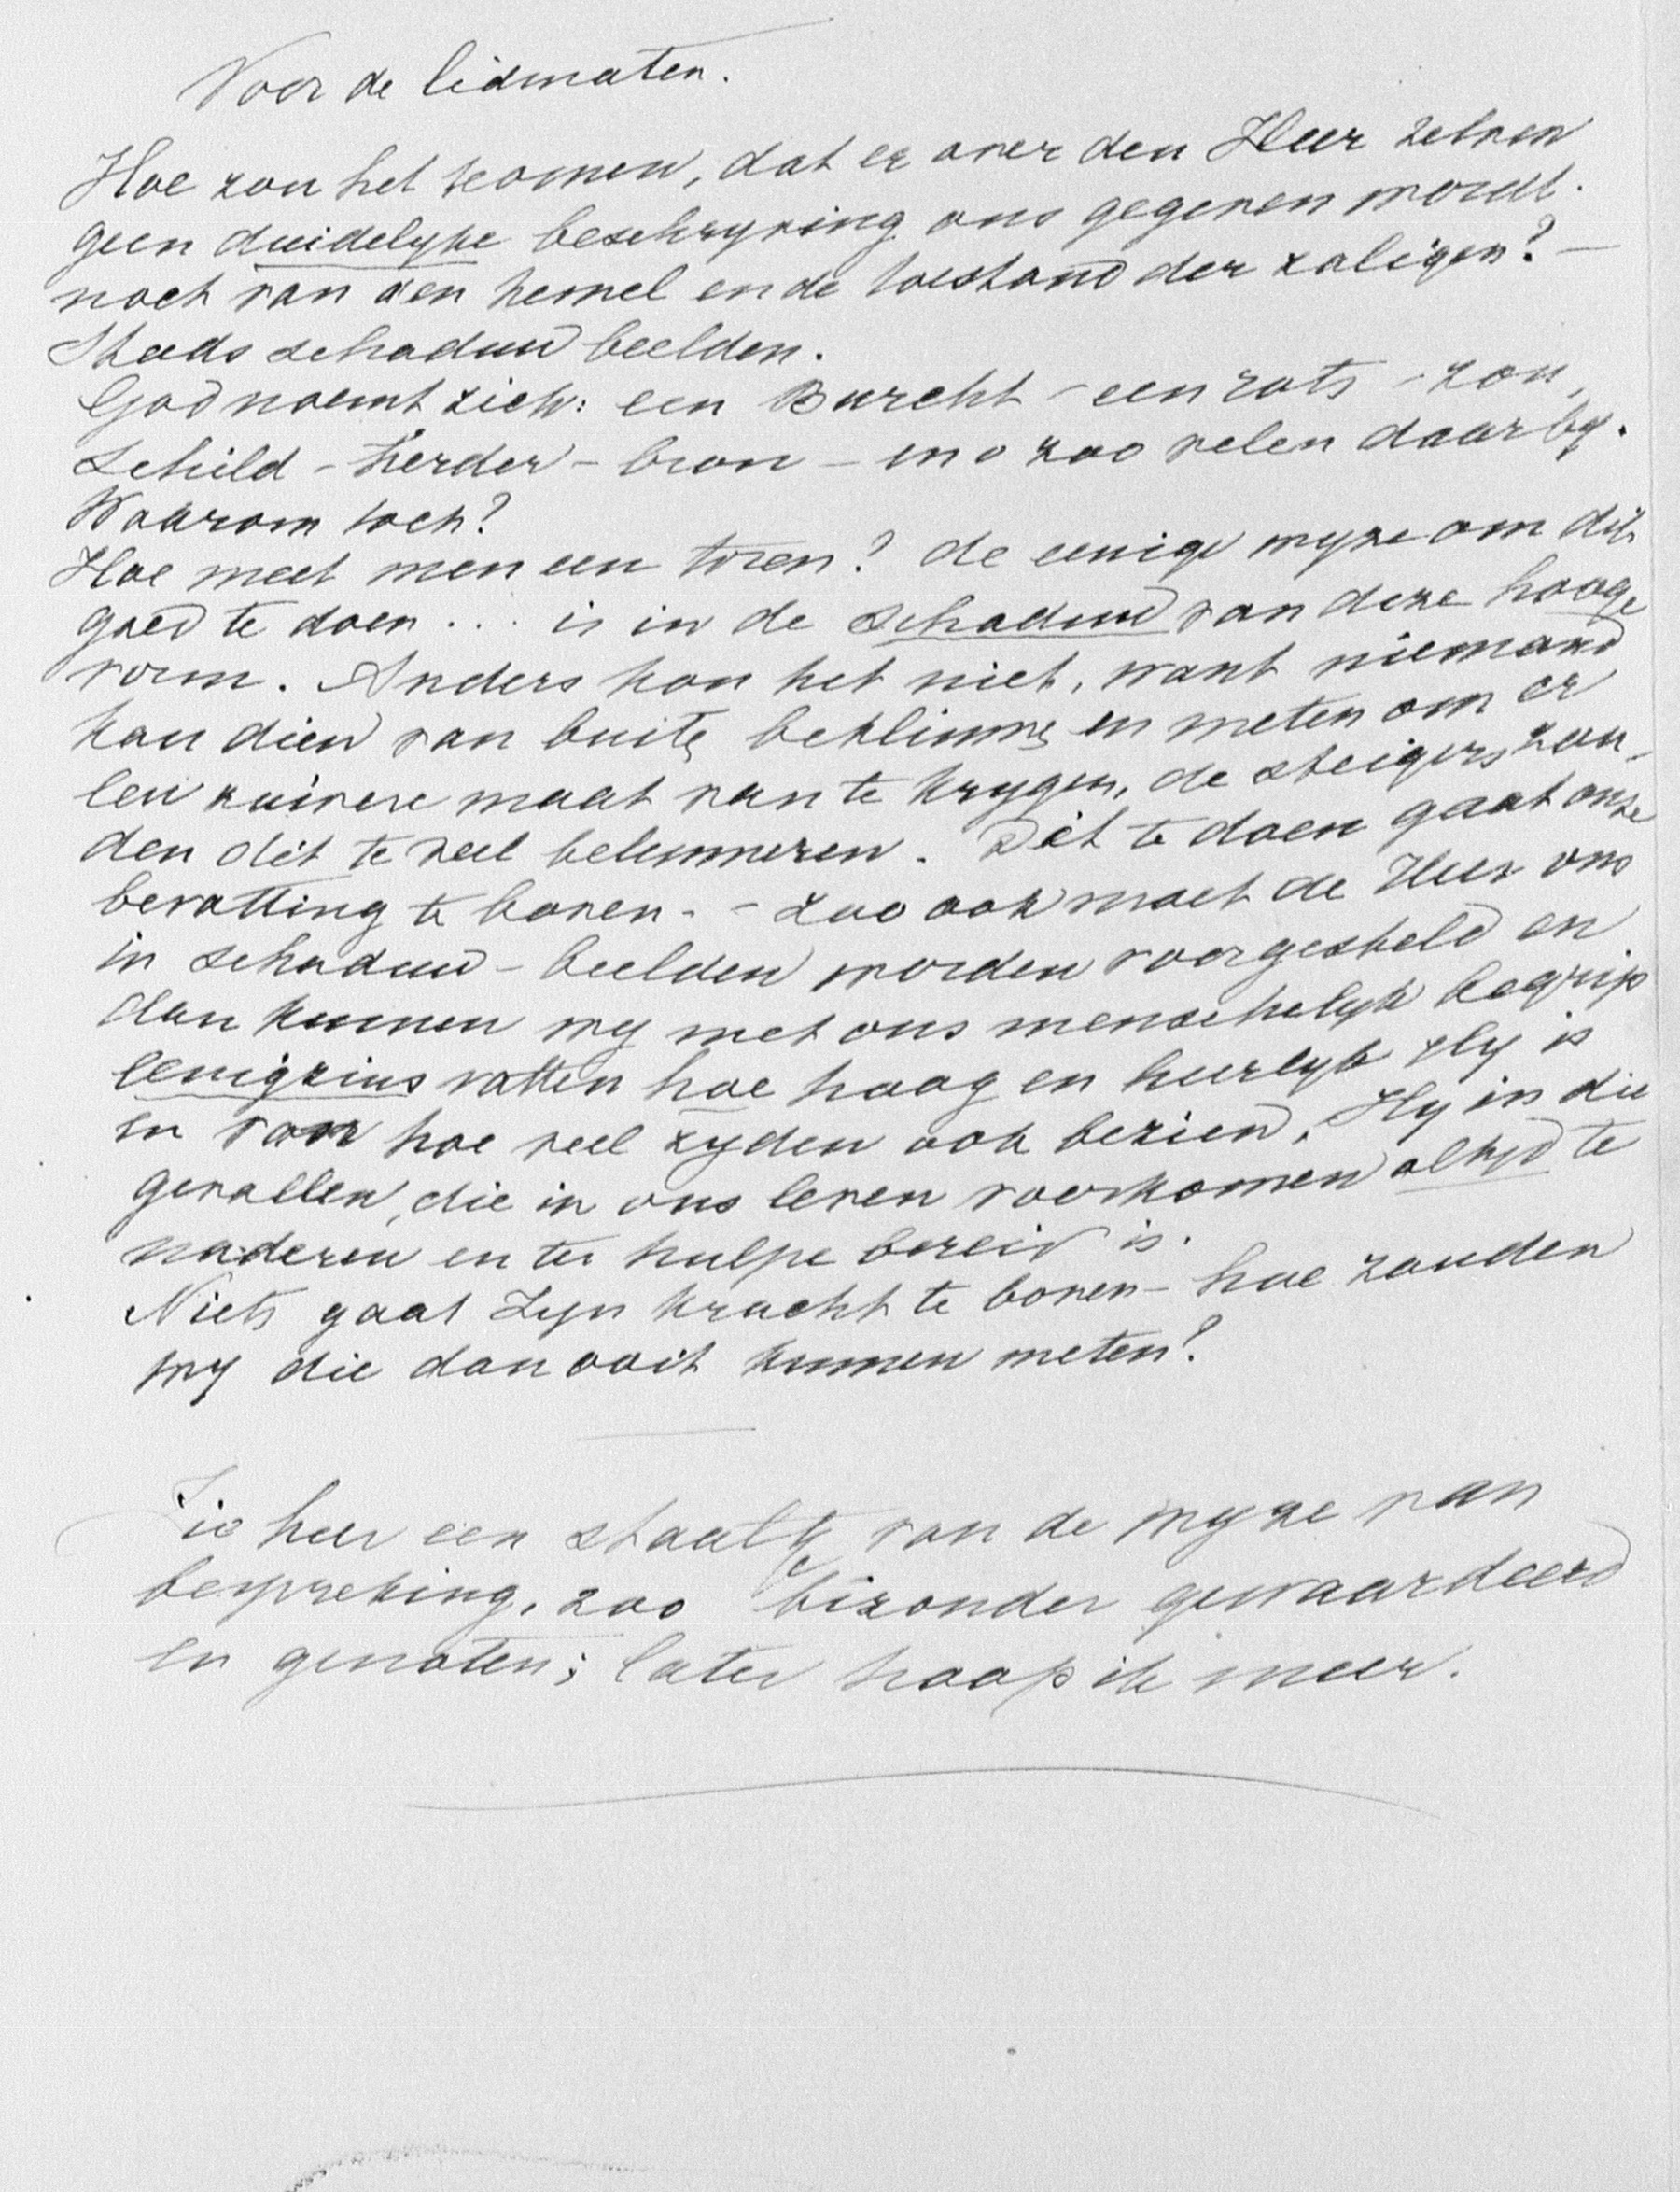 Voor de lidmaten.
Hoe zou het komen, dat er over den Heer zelven
geen duidelyke beschryving ons gegeven wordt.
noch van den hemel en de toestand der zaligen? -
Steeds schaduw beelden.
God noemt zich: een Burcht - een rots - zon,
Schild - herder - bron - en o zoo velen daarby.
Waarom toch?
Hoe meet men een toren? de eenige wyze om dit
goed te doen ... is in de schaduw van deze hooge
vorm. Anders kan het niet, want niemand
kan dien van buiten beklimmen en meten om er
een zuivere maat van te krygen, de steigers zou-
den dit te veel belemmeren. Dit te doen gaat onze
bevatting te boven. - Zoo ook moet de Heer ons
in schaduw - beelden worden voorgesteld en
dan kunnen wy met ons menschelyk begrip
eenigzins vatten hoe hoog en heerlyk Hy is
en van hoe veel zyden ook bezien, Hy in die
gevallen, die in ons leven voorkomen altyd te
naderen en ter hulpe bereid is.
Niets gaat Zyn kracht te boven - hoe zouden
wy die dan ooit kunnen meten?
Zie hier een staaltje van de wyze van
bespreking, zoo bizonder gewaardeerd
en genoten; later hoop ik meer.